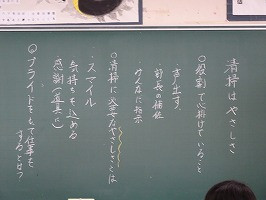 清掃はやさしさ
○役割で心掛けていること
・声出す
部長の補佐
みんなに指示
○清掃に必要なやさしさとは
・スマイル
気持ちを込める
感謝(道具に)
◎プライドをもって仕事を
するとは?